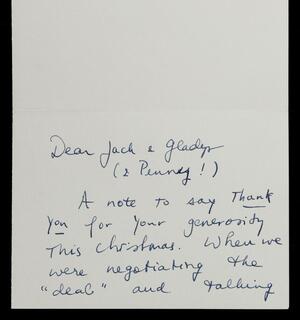 Dear Jack & Gladys
(& Penney!)
A note to say Thank
You for your generosity
This Christmas. When we
were negotiating the
"deal" and talking